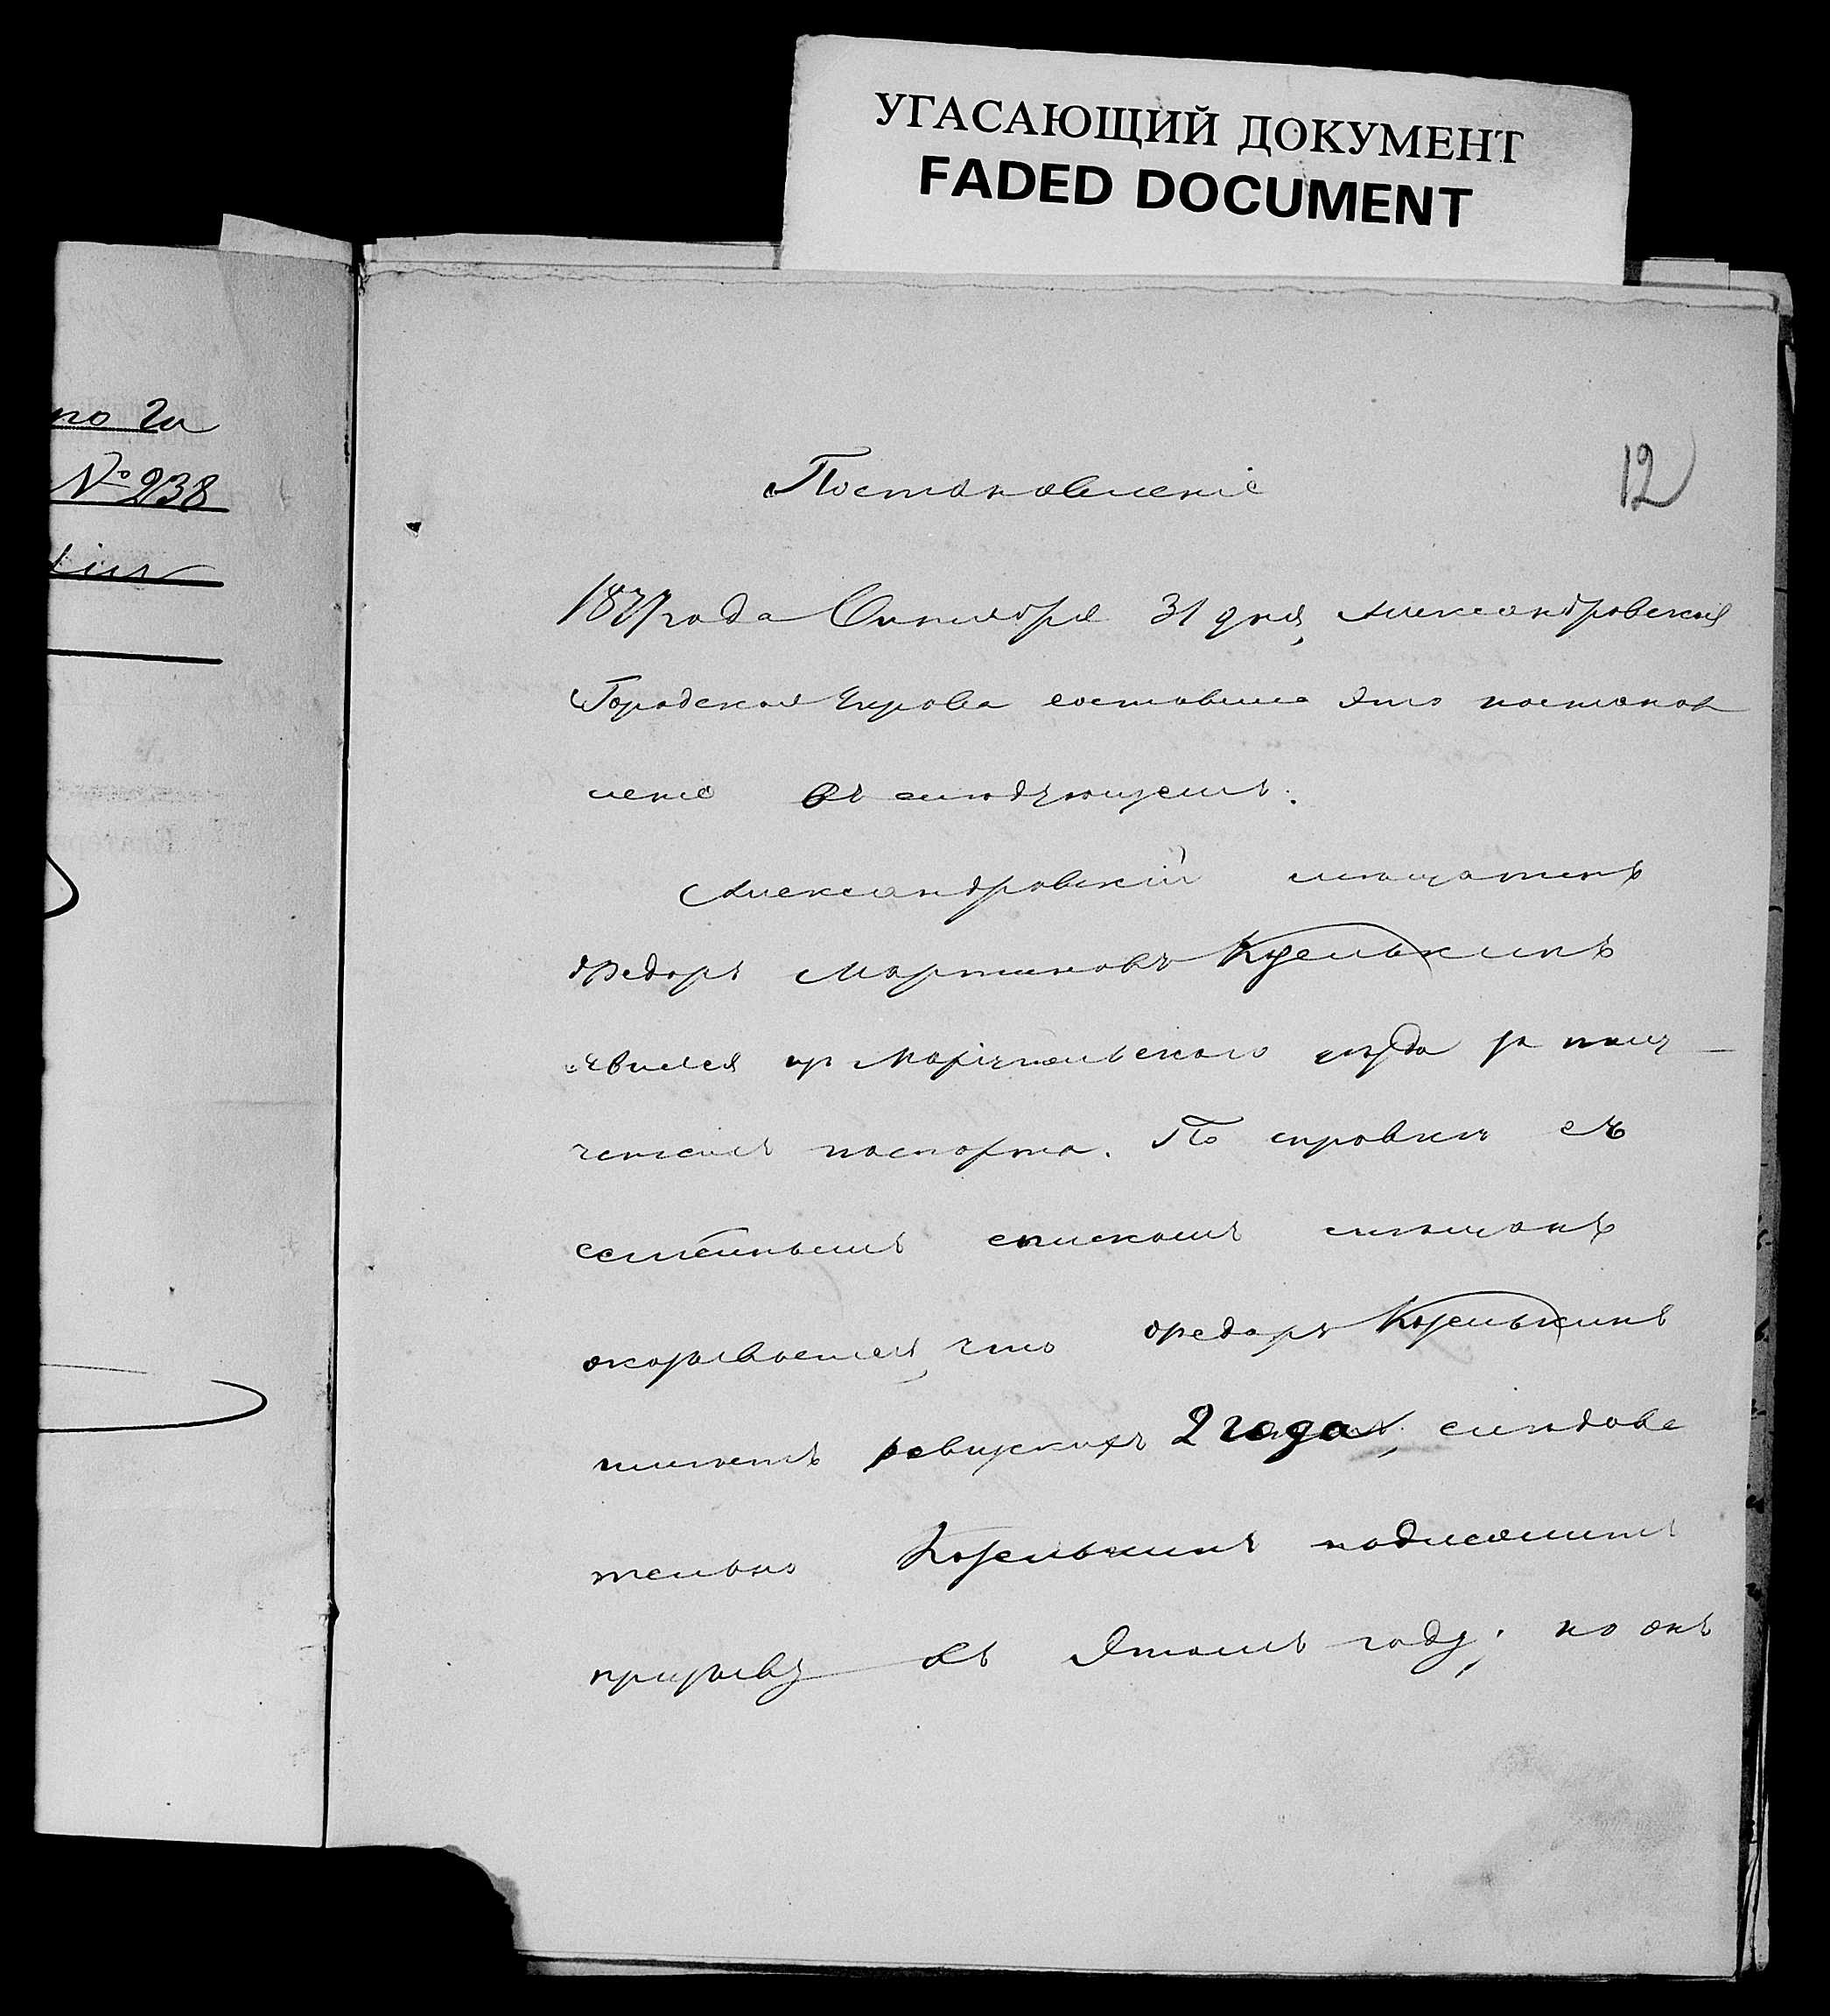 УГАСАЮЩИЙ ДОКУМЕНТ
FADED DOCUMENT
№ 238
12
Постановленіе
1877 года Октября 31 дня, Александровская
Городская Управа составила это постанов
леніе въ слѣдующемъ:
Александровскій мѣщанинъ
Федоръ Мартиновъ Козелькинъ
явился из Маріупольскаго уѣзда за полу-
ченіемъ паспорта. По справкѣ съ
семейнымъ спискомъ мѣщанъ
оказывается, что Федоръ Козелькинъ
имѣетъ ревизскихъ 2 года, слѣдова
тельно Козелькинъ подлежитъ
призыву въ этомъ году; но онъ